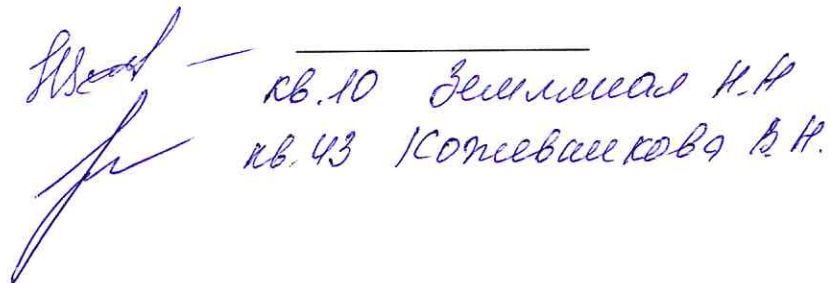 кв.10 Земляная Н.Н
кв.43 Кожевникова В.Н.